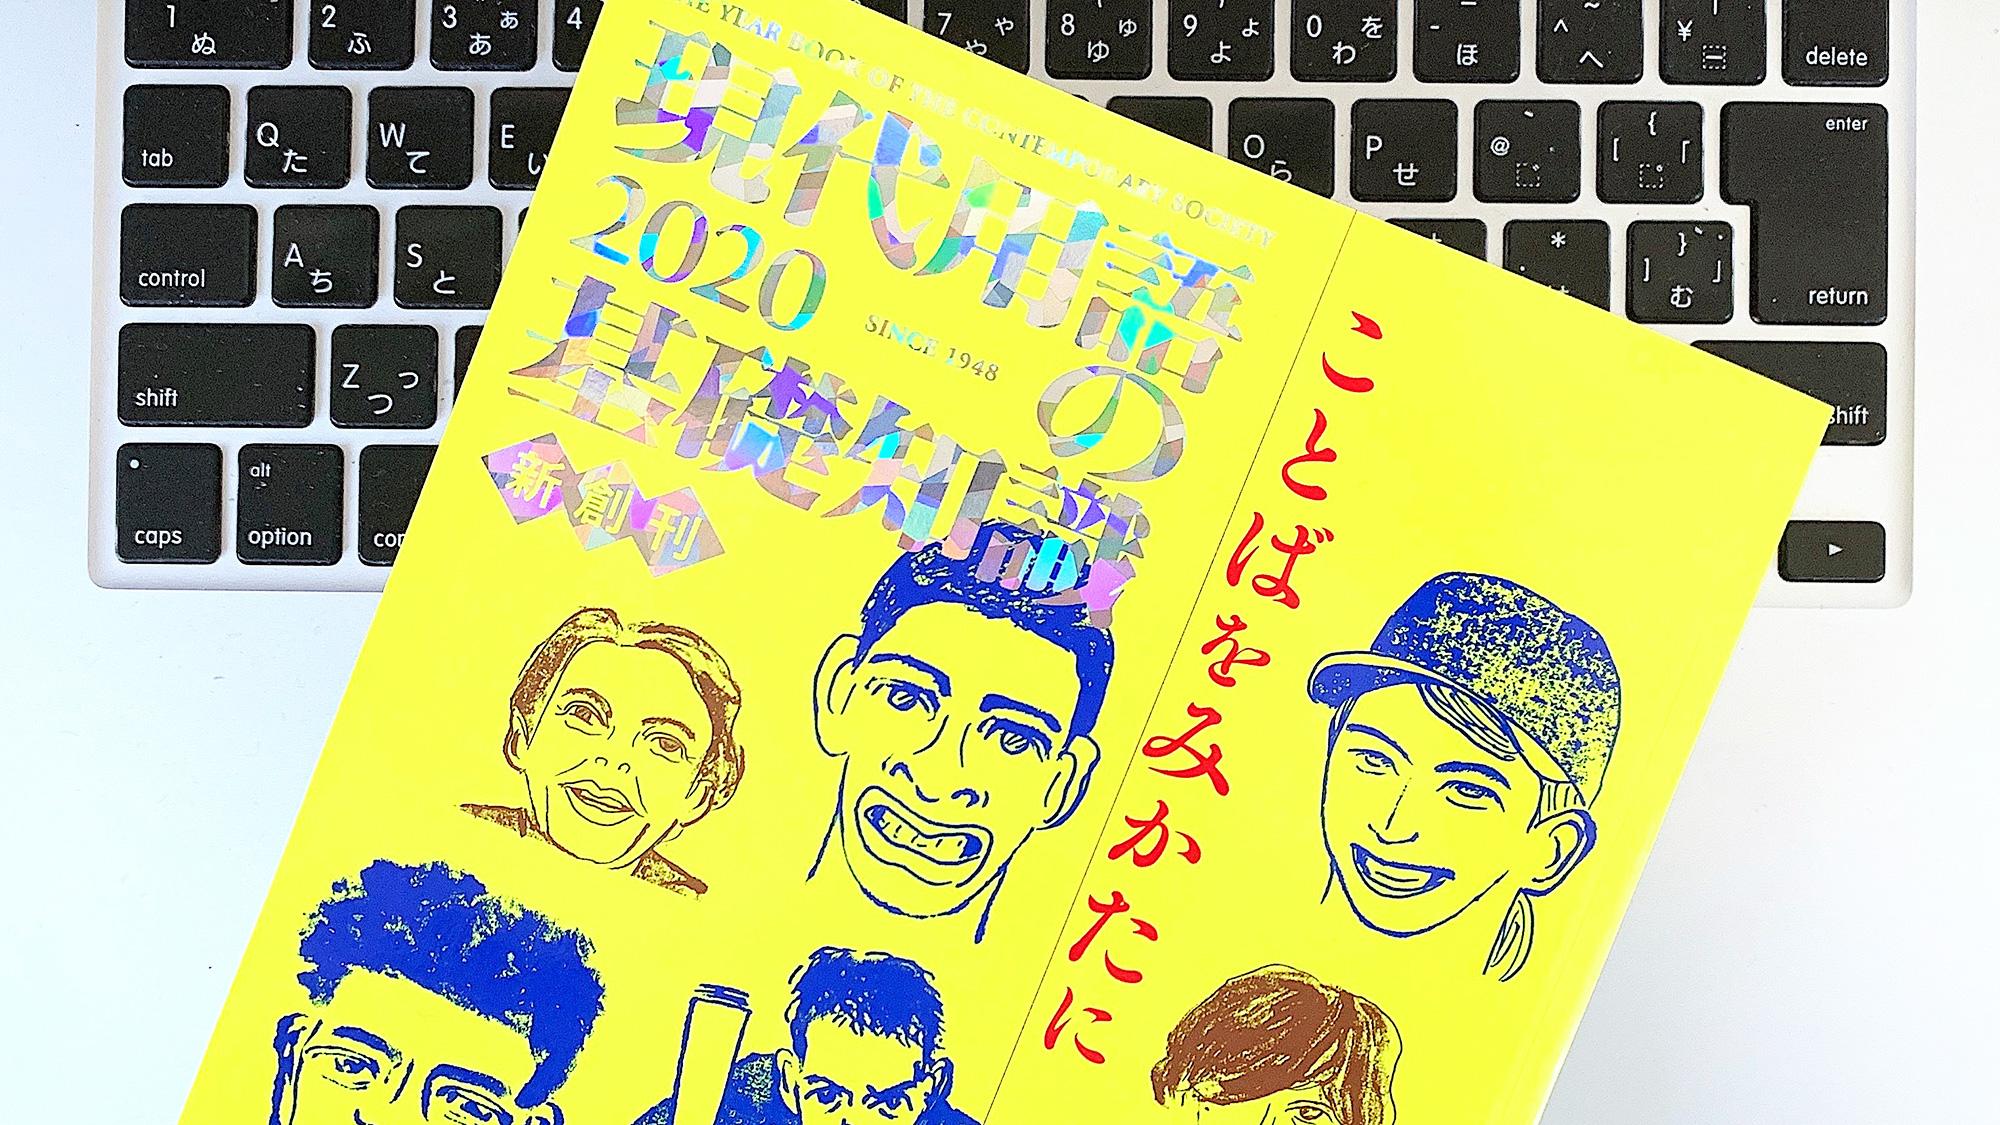 THE YEAR BOOK OF THE CONTEMPORARY SOCIETY
現代用語の
2020
SINCE 1948
基礎知識
新創刊
ことばをみかたに
1 ぬ
2 ふ
3 ぁ あ
4
7 ゃ や
8 ゅ ゆ
9 ょ よ
0 を わ
- ほ
^ ~ へ
¥ |
delete
tab
Q た
W て
E い
O ら
P せ
@
{ [ 「
enter
return
control
A ち
S と
*
} ] 」 む
shift
Z っ つ
shift
caps
alt
option